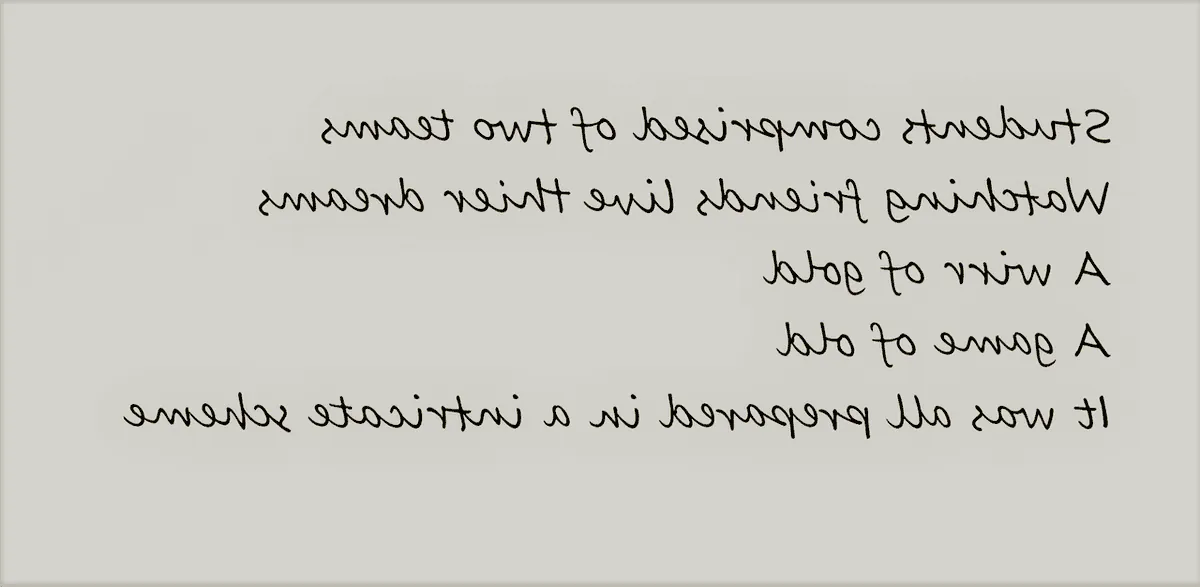 Students comprised of two teams
Watching friends live thier dreams
A wirr of gold
A game of old
It was all prepared in a intricate scheme